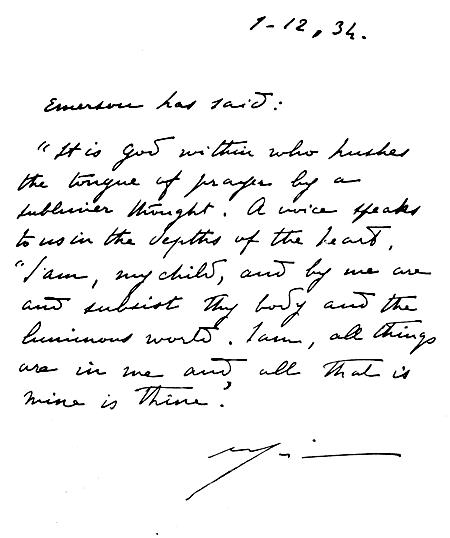 1-12, 34.
Emerson has said:
"It is God within who hushes
the tongue of prayer by a
sublimer thought. A voice speaks
to us in the depths of the heart,
"I am, my child, and by me are
and subsist thy body and the
luminous world. I am, all things
are in me and all that is
mine is thine."